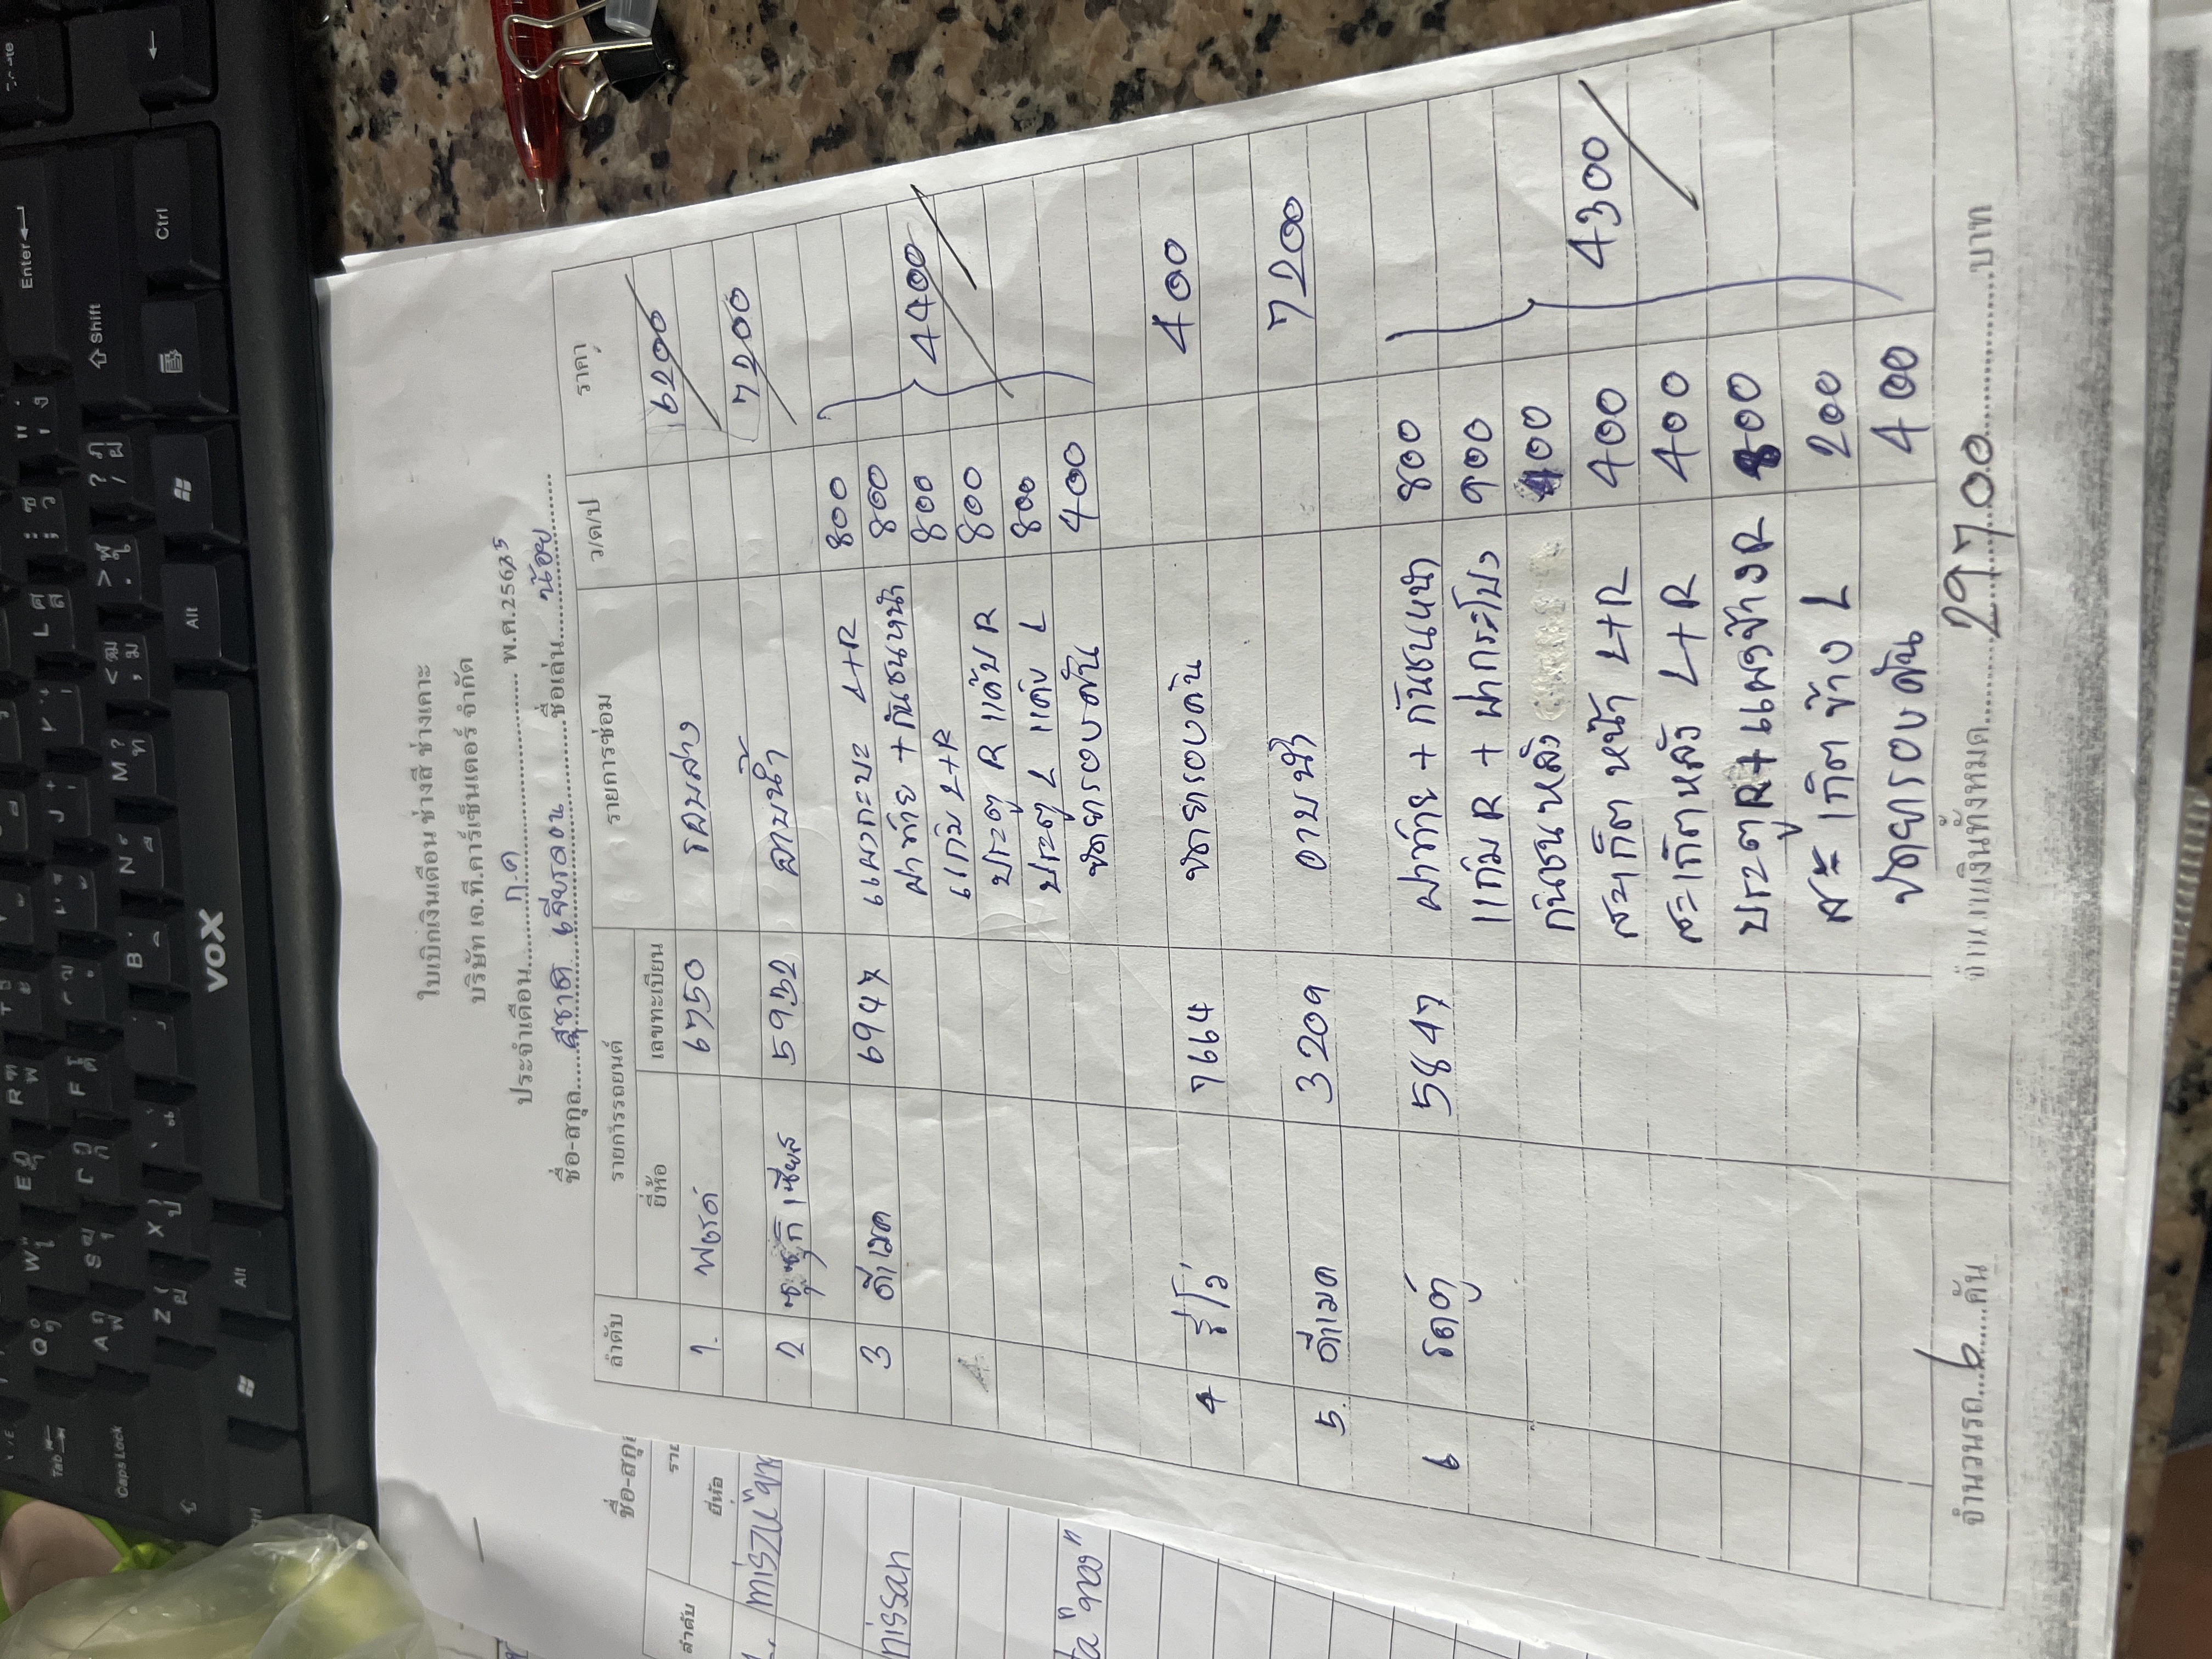 ใบเบิกเงินเดือน ช่างสี ช่างเคาะ
บริษัท เจ.ที.คาร์เซ็นเตอร์ จำกัด
ประจำเดือน ก.ค พ.ศ.2565
ชื่อ-สกุล สุชาติ ชื่อเล่น น้อย
ลำดับ รายการรถยนต์ รายการซ่อม ว/ด/ป ราคา
ยี่ห้อ เลขทะเบียน
1. ฟอร์ด 6750 6200
2 ซูซูกิ เซียส 5932 อาบน้ำ 7200
3 ดีแมค 6947 แผงกะบะ L+R 800
ฝาท้าย + กันชนหน้า 800
แก้ม L+R 800 4400
ประตู R แค๊ป R 800
ประตู L แค๊ป L 800
ขัดยารอบคัน 400
4 รีโว่ 7664 ขัดยารอบคัน 400
5. ดีแมค 3209 อาบน้ำ 7200
6 รถตู้ 5847 ฝาท้าย + กันชนหน้า 800
แก้ม R + ฝากระโปรง 900
กันชนหลัง 400
สะเก็ต หน้า L+R 400 4300
สะเก็ตหลัง L+R 400
ประตู R + แผงข้าง R 800
สะเก็ต ข้าง L 200
ขัดยารอบคัน 400
จำนวนรถ 6 คัน จำนวนเงินทั้งหมด 29700 บาท
ชื่อ-สกุล
ลำดับ
ยี่ห้อ
nissan
VOX
Enter
Shift
Ctrl
Alt
Caps Lock
Tab